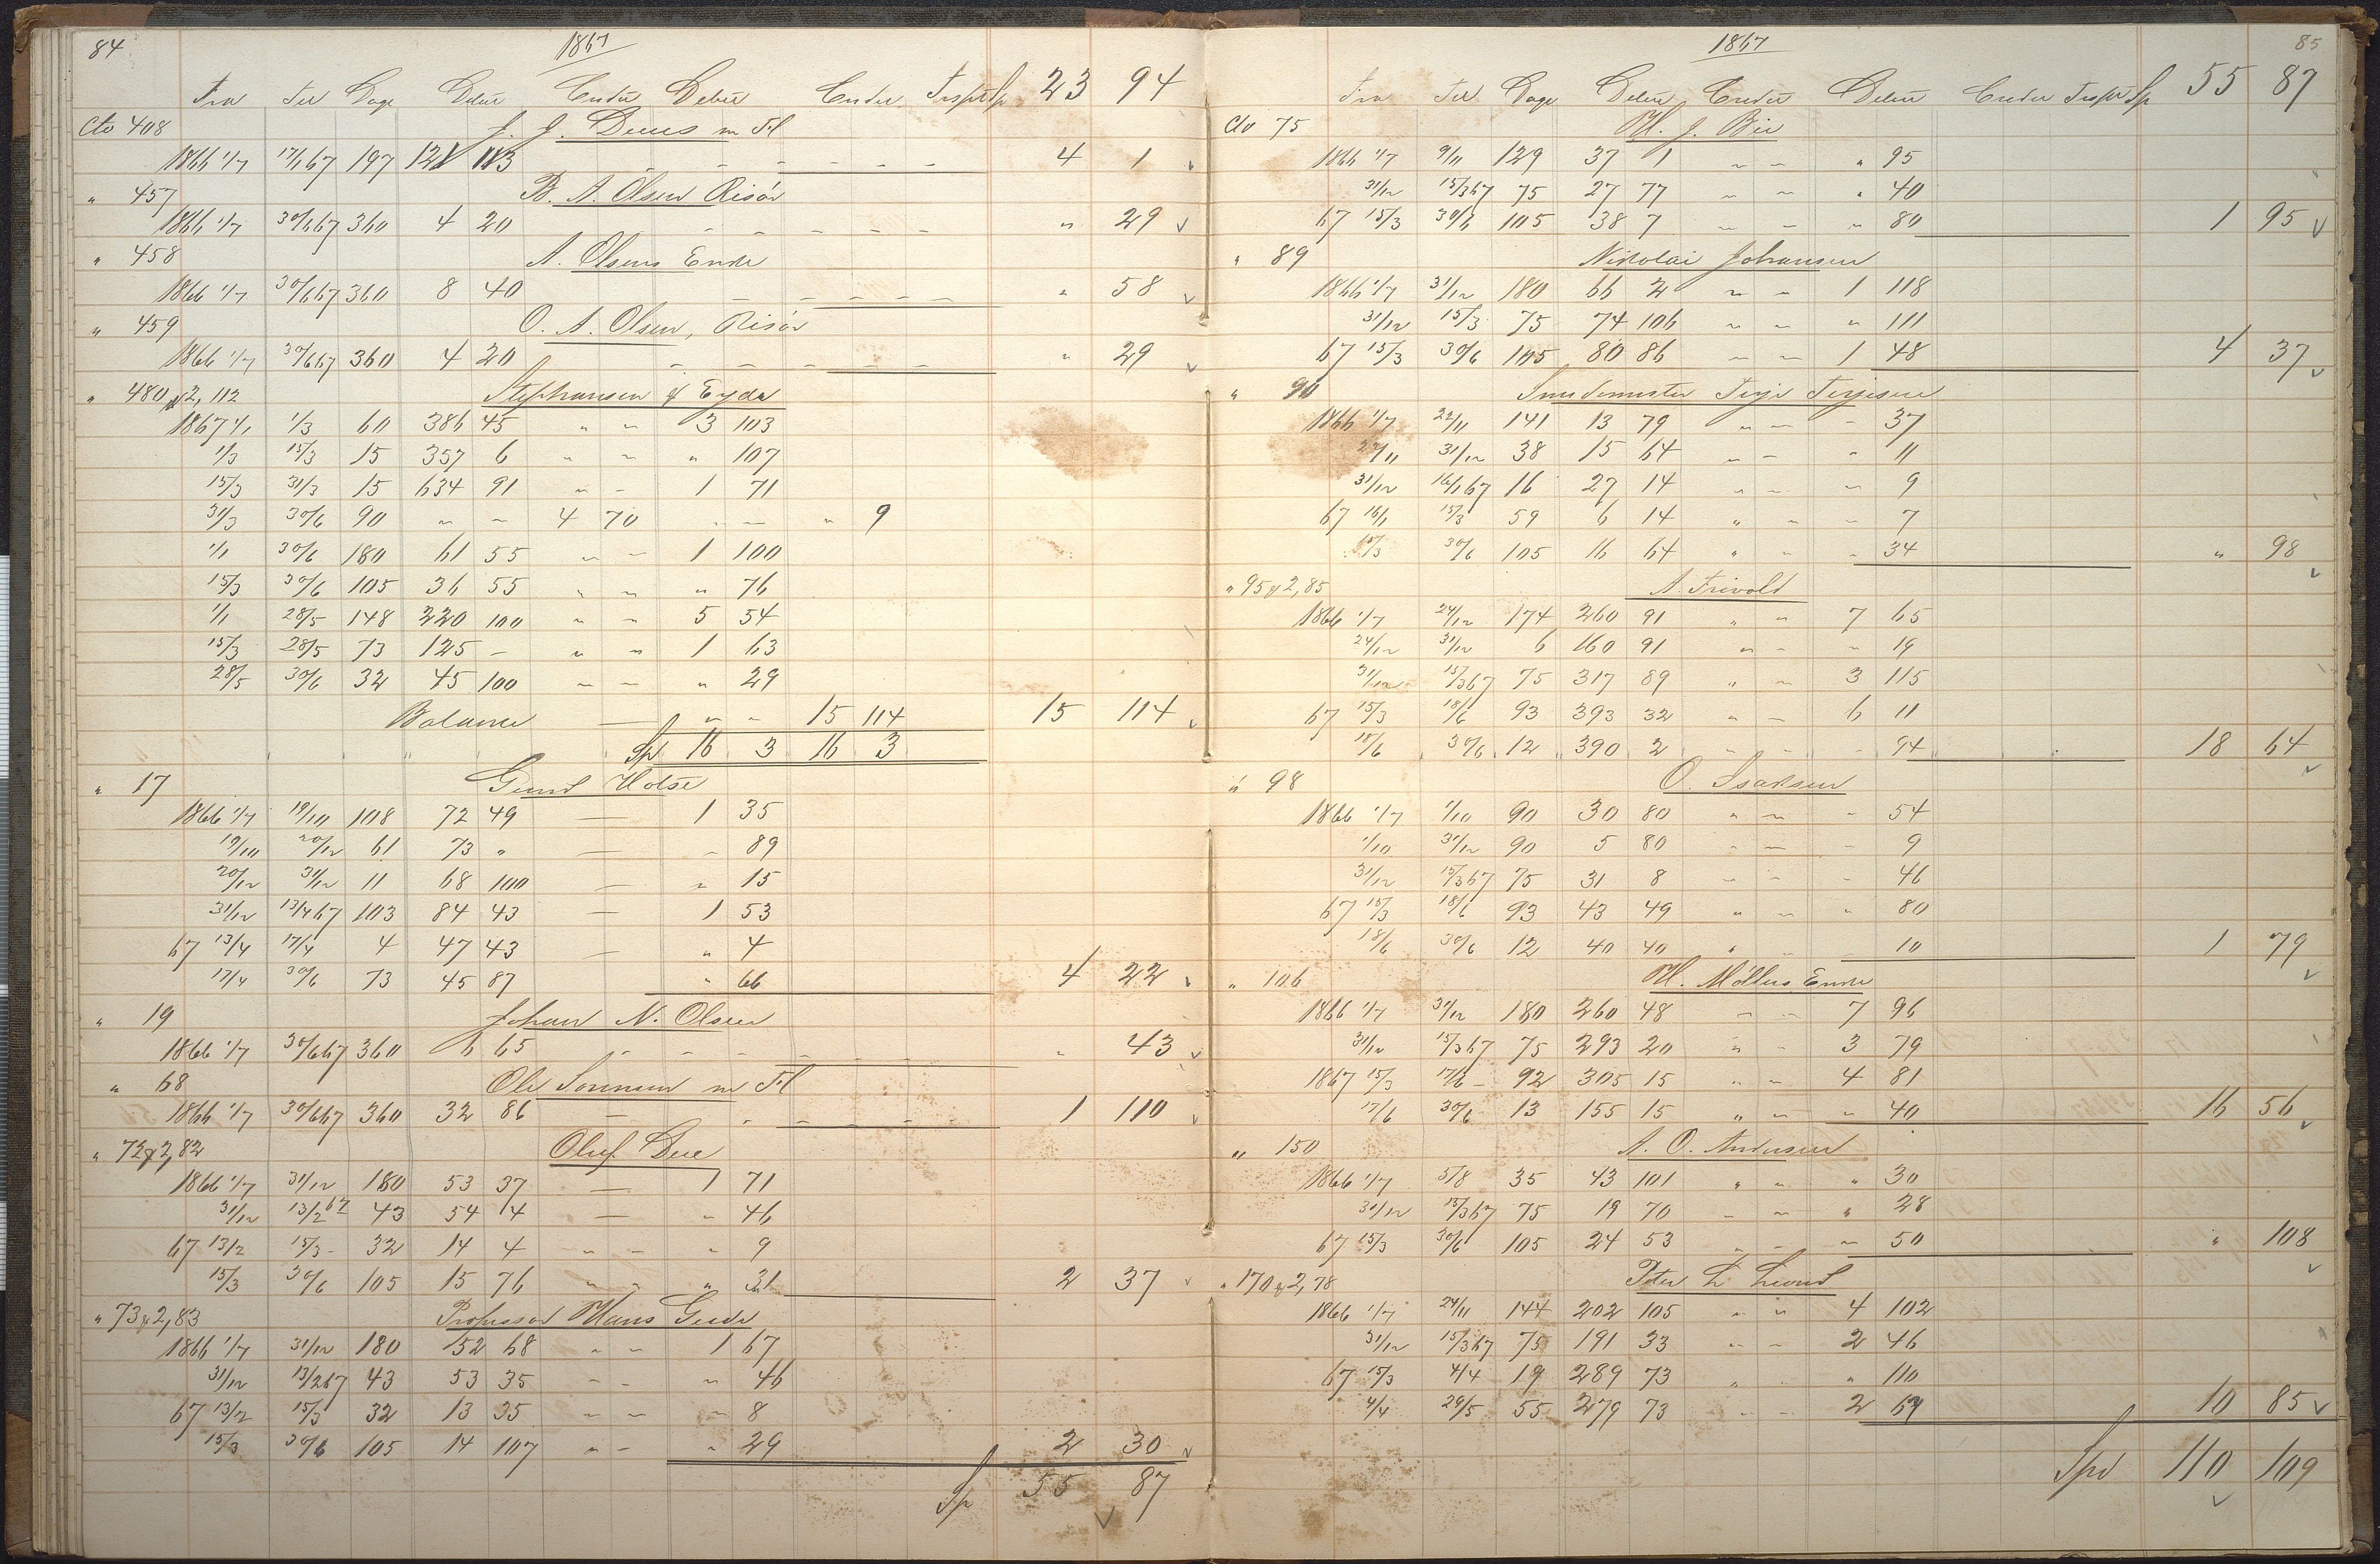 84
1867
Fra Til Dage Debit Credit Debit Credit Trspt Sp 23 94
Cto 408 J. J. Dues m Fl
1866 1/7 17/1 67 197 121 113 - - - - - - 4 1
" 457 B. A. Olsen Risör
1866 1/7 30/6 67 360 4 20 - - - - - " 29
" 458 A. Olsens Enke
1866 1/7 30/6 67 360 8 40 - - - - - " 58
" 459 O. A. Olsen, Risör
1866 1/7 30/6 67 360 4 20 - - - - - " 29
" 480 & 2, 112 Stephansen & Eyde
1867 1/1 1/3 60 386 45 " " 3 103
1/3 15/3 15 357 6 " " " 107
15/3 31/3 15 634 91 " - 1 71
31/3 30/6 90 " " 4 70 " - " 9
1/1 30/6 180 61 55 " - 1 100
15/3 30/6 105 36 55 " " " 76
1/1 28/5 148 220 100 " " 5 54
15/3 28/5 73 125 - " " 1 63
28/5 30/6 32 45 100 - - " 29
Balance — " " 15 114 15 114
Sp 16 3 16 3
" 17 Gund Holse
1866 1/7 19/10 108 72 49 — 1 35
19/10 20/12 61 73 " — - 89
20/12 31/12 11 68 100 — " 15
31/12 13/4 67 103 84 43 — 1 53
67 13/4 17/4 4 47 43 — " 4
17/4 30/6 73 45 87 " 66 4 22
" 19 Johan N. Olsen
1866 1/7 30/6 67 360 6 65 - - - - - - " 43
" 68 Ole Sörensen m Fl
1866 1/7 30/6 67 360 32 86 — - - - - 1 110
" 72 & 2, 82 Oluf Due
1866 1/7 31/12 180 53 37 — 1 71
31/12 13/2 67 43 54 4 — - 46
67 13/2 15/3 - 32 14 4 " - " 9
15/3 30/6 105 15 76 " " " 31 2 37
" 73 & 2, 83 Professor Hans Gude
1866 1/7 31/12 180 52 68 " " 1 67
31/12 13/2 67 43 53 35 - - " 46
67 13/2 15/3 32 13 35 - - - 8
15/3 30/6 105 14 107 " - " 29 2 30
Sp 55 87
1867
85
Fra Til Dage Debit Credit Debit Credit Trspt Sp 55 87
Cto 75 H. J. Bie
1866 1/7 9/11 129 37 1 - - " 95
31/12 15/3 67 75 27 77 - - " 40
67 15/3 30/6 105 38 7 - - " 80 1 95
" 89 Nikolai Johansen
1866 1/7 31/12 180 66 2 " - 1 118
31/12 15/3 75 74 106 - - " 111
67 15/3 30/6 105 80 86 - - 1 48 4 37
" 90 Smedemester Terje Terjesen
1866 1/7 22/11 141 13 79 " - - 37
22/11 31/12 38 15 64 " - " 11
31/12 16/1 67 16 27 14 " " - 9
67 16/1 15/3 59 6 14 " - - 7
15/3 30/6 105 16 64 " - - 34 " 98
" 95 & 2, 85 A. Frivold
1866 1/7 24/12 174 260 91 " " 7 65
24/12 31/12 6 160 91 " - " 19
31/12 15/3 67 75 317 89 " - 3 115
67 15/3 18/6 93 393 32 " - 6 11
18/6 30/6 12 390 2 - - - 94 18 64
" 98 O. Isaksen
1866 1/7 1/10 90 30 80 " - - 54
1/10 31/12 90 5 80 - - - 9
31/12 15/3 67 75 31 8 - - - 46
67 15/3 18/6 93 43 49 " - " 80
18/6 30/6 12 40 40 " - - 10 1 79
" 106 H. Möllers Enke
1866 1/7 31/12 180 260 48 - - 7 96
31/12 15/3 67 75 293 20 " - 3 79
1867 15/3 17/6 - 92 305 15 " - 4 81
17/6 30/6 13 155 15 " - " 40 16 56
" 150 A. O. Andersen
1866 1/7 5/8 35 43 101 " " " 30
31/12 15/3 67 75 19 70 - - " 28
67 15/3 30/6 105 24 53 " - - 50 " 108
" 170 & 2, 78 Peter L. Lund
1866 1/7 24/11 144 202 105 " " 4 102
31/12 15/3 67 75 191 33 - - 2 46
67 15/3 4/4 19 289 73 " . " 110
4/4 29/5 55 279 73 - - 2 67 10 85
Spd 110 109